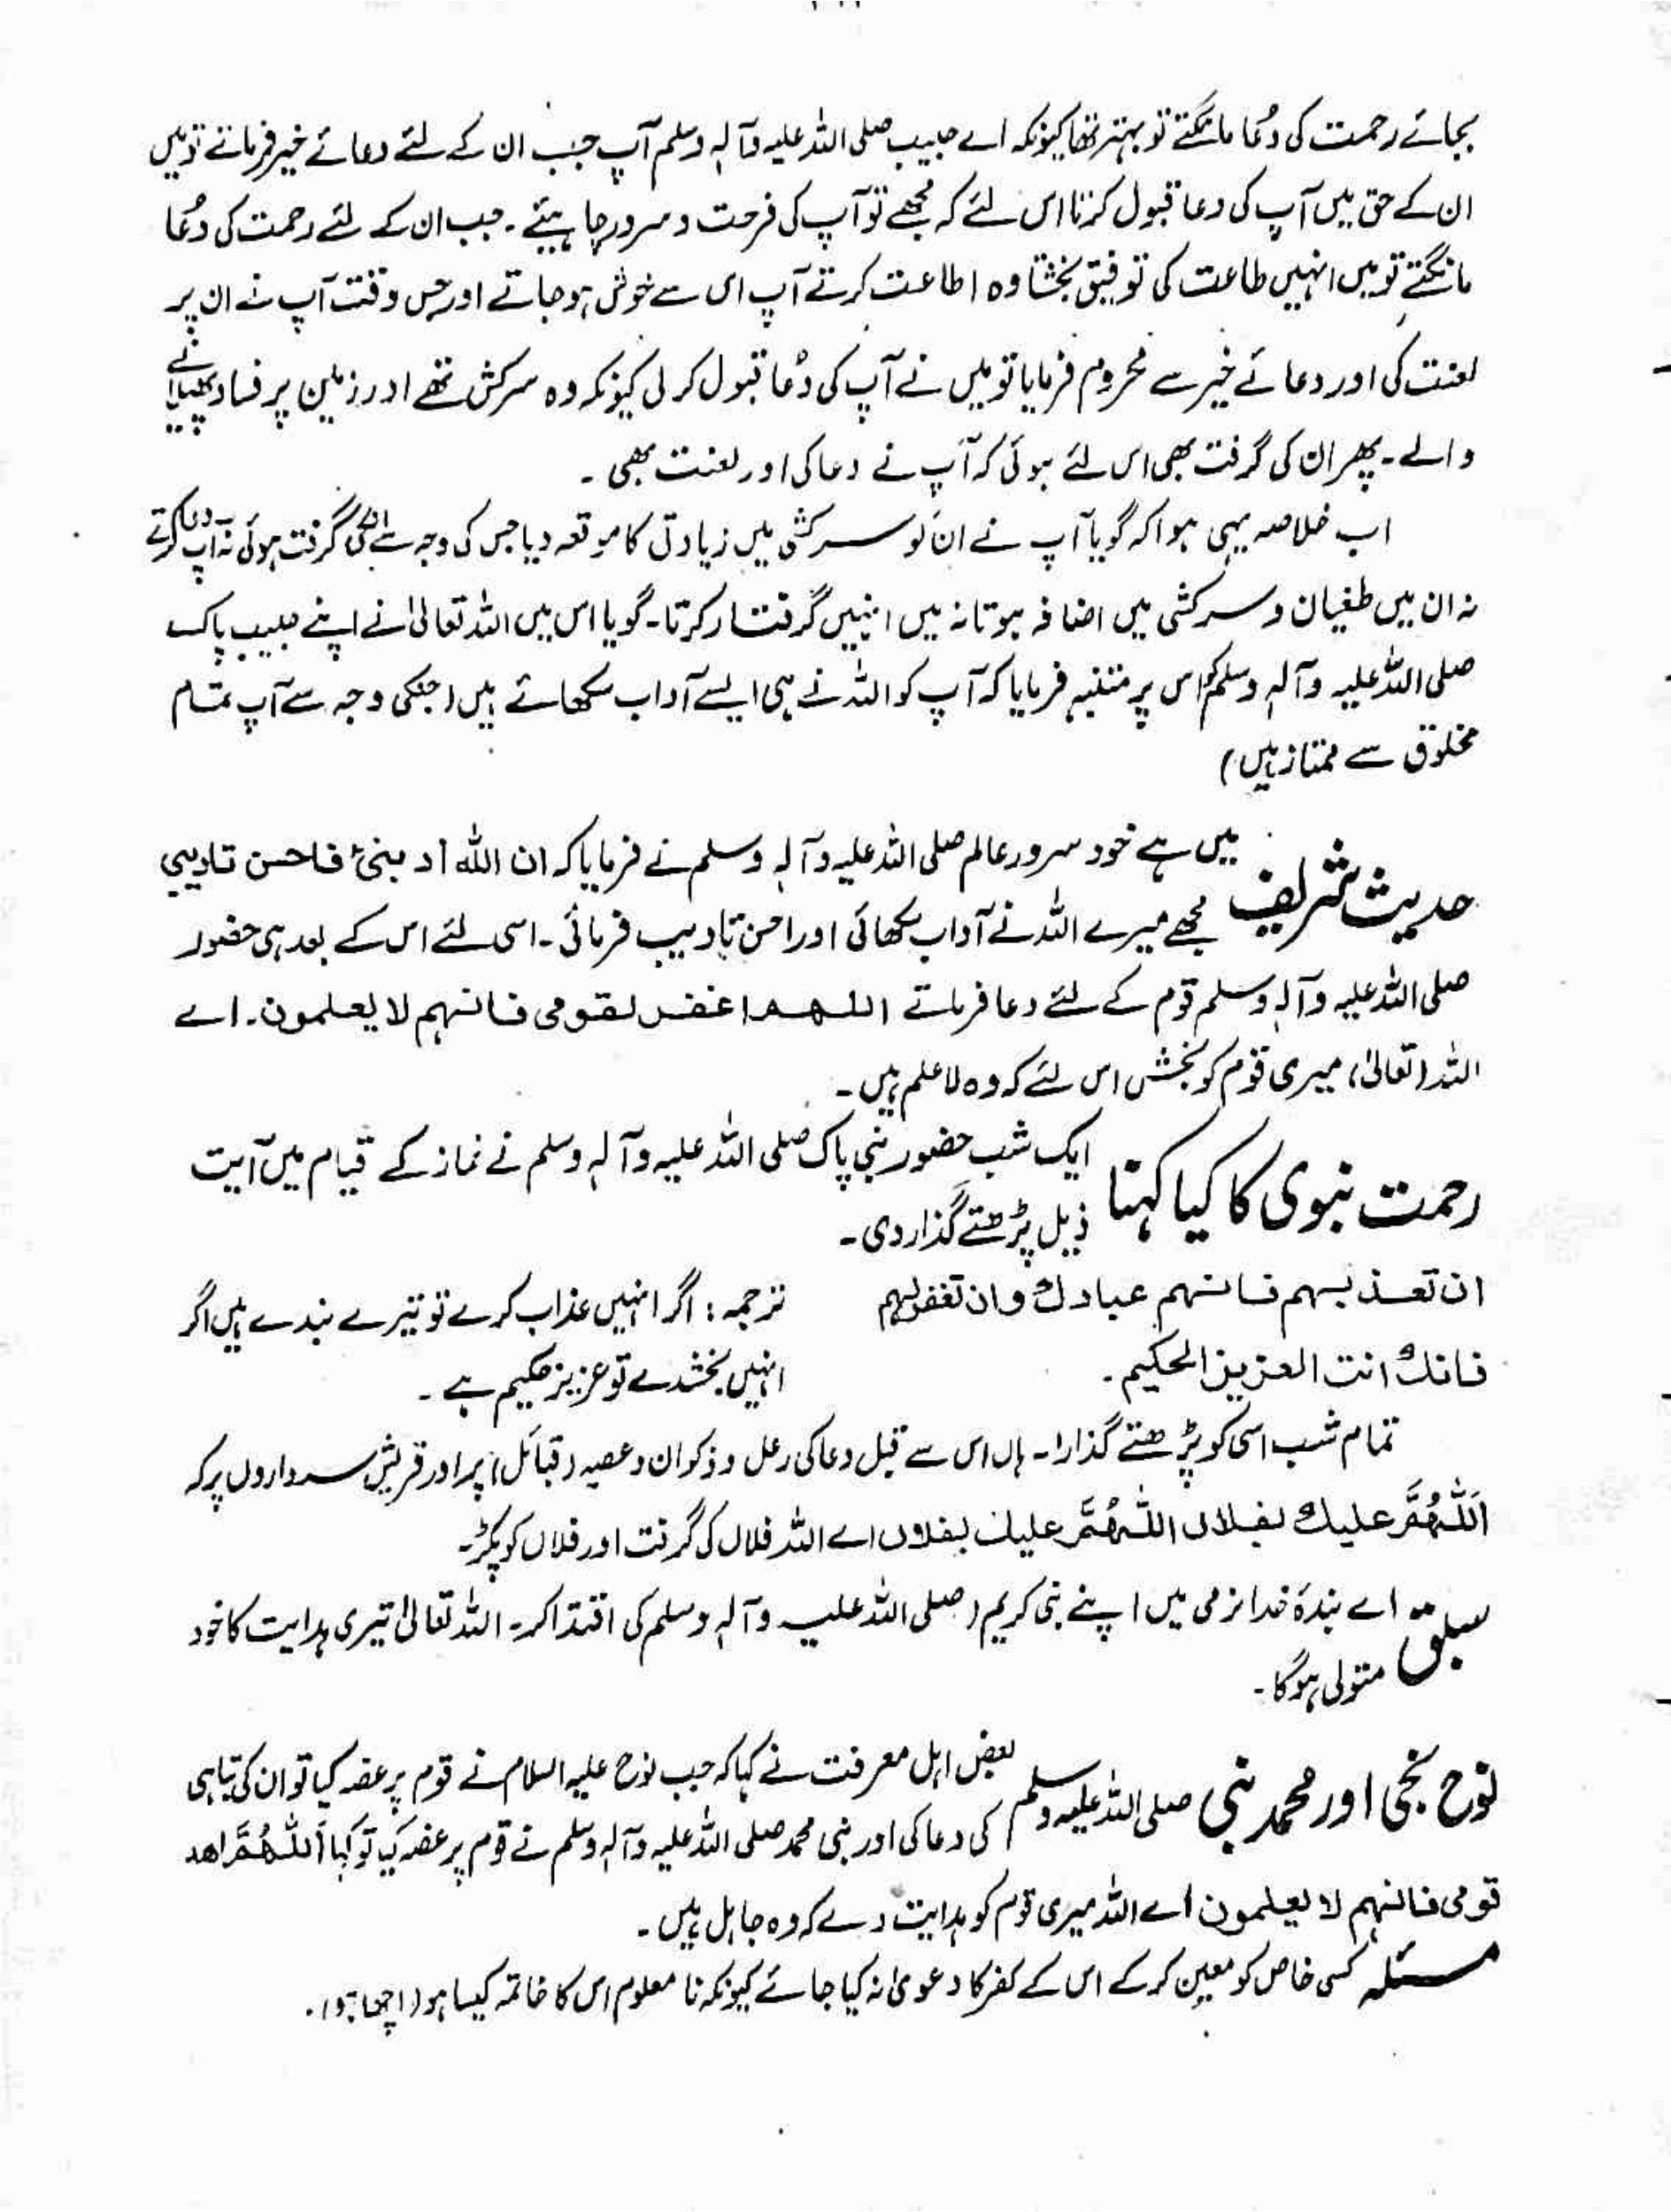 بجائے رحمت کی دُعا مانگتے تو بہتر تھا کیونکہ اے حبیب صلی اللہ علیہ وآلہٖ وسلم آپ جب ان کے لئے دعائے خیر فرماتے تو میں
ان کے حق میں آپ کی دعا قبول کرتا اس لئے کہ مجھے تو آپ کی فرحت و سرور چاہیئے۔ جب ان کے لئے رحمت کی دُعا
مانگتے تو میں انہیں طاعت کی توفیق بخشتا وہ اطاعت کرتے آپ اس سے خوش ہو جاتے اور جس وقت آپ نے ان پر
لعنت کی اور دعائے خیر سے محروم فرمایا تو میں نے آپ کی دُعا قبول کر لی کیونکہ وہ سرکش تھے اور زمین پر فساد پھیلانے
والے۔ پھر ان کی گرفت بھی اس لئے ہوئی کہ آپ نے دعا کی اور لعنت بھی۔
اب خلاصہ یہی ہوا کہ گویا آپ نے ان کو سرکشی میں زیادتی کا موقعہ دیا جس کی وجہ سے انکی گرفت ہوئی نہ آپ دعا کرتے
نہ ان میں طغیان و سرکشی میں اضافہ ہوتا نہ میں انہیں گرفتار کرتا۔ گویا اس میں اللہ تعالیٰ نے اپنے حبیب پاک
صلی اللہ علیہ وآلہٖ وسلم کو اس پر متنبہ فرمایا کہ آپ کو اللہ نے ہی ایسے آداب سکھائے ہیں (جنکی وجہ سے آپ تمام
مخلوق سے ممتاز ہیں)
حدیث شریف میں ہے خود سرور عالم صلی اللہ علیہ وآلہٖ وسلم نے فرمایا کہ ان اللہ أدبنیٔ فاحسن تادیبی
مجھے میرے اللہ نے آداب سکھائی اور احسن تادیب فرمائی۔ اسی لئے اس کے بعد ہی حضور
صلی اللہ علیہ وآلہٖ وسلم قوم کے لئے دعا فرماتے اللھم اغفر لقومی فانہم لا یعلمون۔ اے
اللہ (تعالیٰ) میری قوم کو بخش اس لئے کہ وہ لاعلم ہیں۔
رحمت نبوی کا کیا کہنا ایک شب حضور نبی پاک صلی اللہ علیہ وآلہٖ وسلم نے نماز کے قیام میں آیت
ذیل پڑھتے گذار دی۔
ان تعذبہم فانہم عبادك وان تغفرلہم ترجمہ: اگر انہیں عذاب کرے تو تیرے بندے ہیں اگر
فانك انت العزیز الحکیم۔ انہیں بخشدے تو عزیز حکیم ہے۔
تمام شب اسی کو پڑھتے گذارا۔ ہاں اس سے قبل دعا کی رعل و ذکوان و عصیہ (قبائل) پر اور قریش سرداروں پر کہ
اَللّٰہُمَّ علیك بفلاں اللّٰہُمَّ علیك بفلاں اے اللہ فلاں کی گرفت اور فلاں کو پکڑ۔
سبق اے بندۂ خدا نرمی میں اپنے نبی کریم (صلی اللہ علیہ وآلہٖ وسلم کی اقتدا کر۔ اللہ تعالیٰ تیری ہدایت کا خود
متولی ہوگا۔
نوح نجی اور محمد نبی صلی اللہ علیہ وسلم بعض اہل معرفت نے کہا کہ جب نوح علیہ السلام نے قوم پر غصہ کیا تو ان کی تباہی
کی دعا کی اور نبی محمد صلی اللہ علیہ وآلہٖ وسلم نے قوم پر غصہ کیا تو کہا اَللّٰہُمَّ اھد
قومی فانہم لا یعلمون اے اللہ میری قوم کو ہدایت دے کہ وہ جاہل ہیں۔
مسئلہ کسی خاص کو معین کر کے اس کے کفر کا دعویٰ نہ کیا جائے کیونکہ نا معلوم اس کا خاتمہ کیسا ہو (اچھا ہو)۔